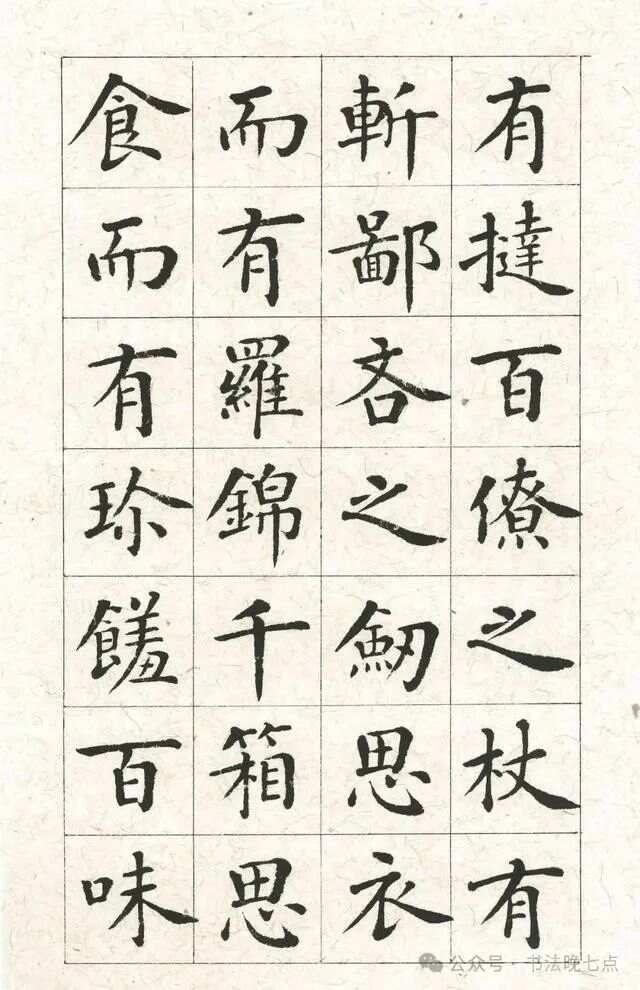 有撻百僚之杖有
斬鄙吝之劒思衣
而有羅錦千箱思
食而有珎饈百味
公众号·书法晚七点